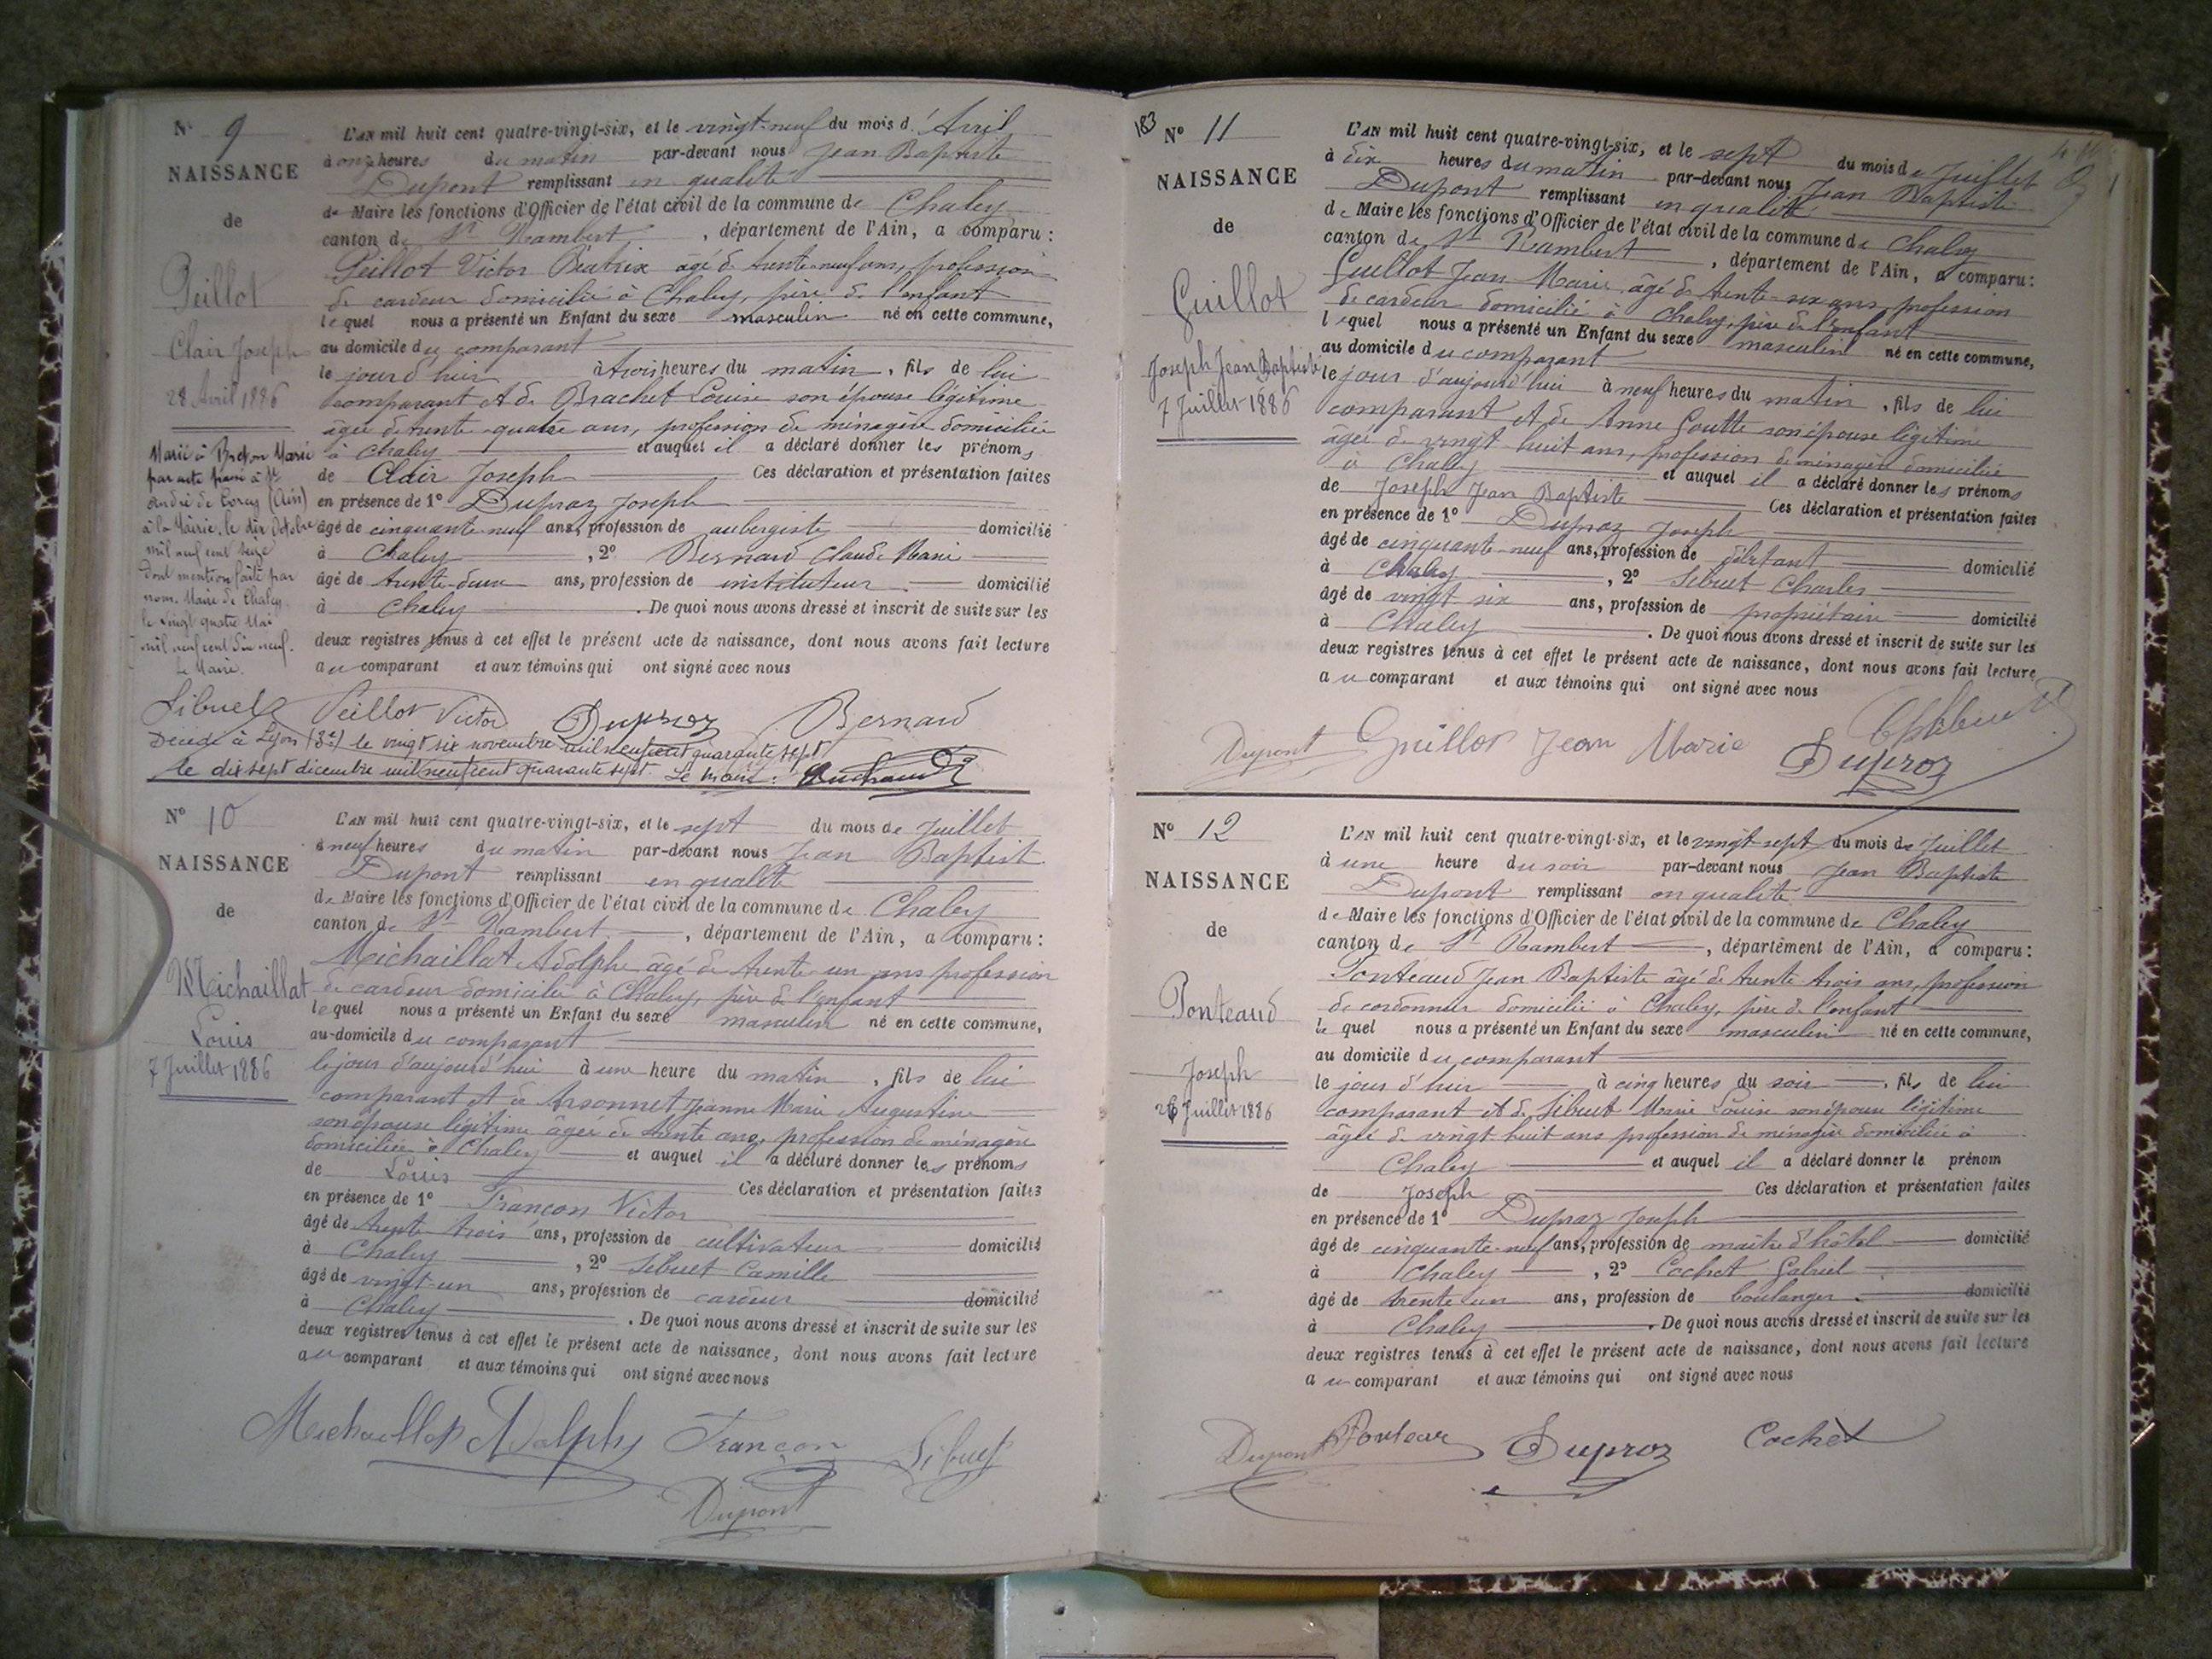 N° 9
NAISSANCE
de
Peillot
Clair Joseph
28 Avril 1886
Marié à Marie
par acte passé à St
André de Corcy (Ain)
à la Mairie, le dix Octobre
mil neuf cent seize
Dont mention faite par
nous, Maire de Chaley
le vingt quatre Mai
mil neuf cent dix neuf.
Le Maire.
L'AN mil huit cent quatre-vingt-six, et le vingt-neuf du mois d'Avril
à onze heures du matin par-devant nous Jean Baptiste
Dupont remplissant en qualité
de Maire les fonctions d'Officier de l'état civil de la commune de Chaley
canton de St Rambert, département de l'Ain, a comparu :
Peillot Victor Béatrix âgé de trente-neuf ans, profession
de cardeur domicilié à Chaley, père de l'enfant
lequel nous a présenté un Enfant du sexe masculin né en cette commune,
au domicile du comparant
le jour d'hier à trois heures du matin, fils de lui
comparant et de Brachet Louise son épouse légitime
âgée de trente-quatre ans, profession de ménagère domiciliée
à Chaley et auquel il a déclaré donner les prénoms
de Clair Joseph Ces déclaration et présentation faites
en présence de 1° Dupraz Joseph
âgé de cinquante-neuf ans, profession de aubergiste domicilié
à Chaley, 2° Bernard Claude Marie
âgé de trente-deux ans, profession de instituteur domicilié
à Chaley. De quoi nous avons dressé et inscrit de suite sur les
deux registres tenus à cet effet le présent acte de naissance, dont nous avons fait lecture
au comparant et aux témoins qui ont signé avec nous
Sibuet Peillot Victor Dupraz Bernard
Décédé à Lyon (3e) le vingt six novembre mil neuf cent quarante sept
le dix sept décembre mil neuf cent quarante sept. Le Maire :
N° 10
NAISSANCE
de
Michaillat
Louis
7 Juillet 1886
L'AN mil huit cent quatre-vingt-six, et le sept du mois de Juillet
à neuf heures du matin par-devant nous Jean Baptiste
Dupont remplissant en qualité
de Maire les fonctions d'Officier de l'état civil de la commune de Chaley
canton de St Rambert, département de l'Ain, a comparu :
Michaillat Adolphe âgé de trente-un ans profession
de cardeur domicilié à Chaley, père de l'enfant
lequel nous a présenté un Enfant du sexe masculin né en cette commune,
au domicile du comparant
le jour d'aujourd'hui à une heure du matin, fils de lui
comparant et de Arsonnet Jeanne Marie Augustine
son épouse légitime âgée de trente ans, profession de ménagère
domiciliée à Chaley et auquel il a déclaré donner les prénoms
de Louis Ces déclaration et présentation faites
en présence de 1° Françon Victor
âgé de trente trois ans, profession de cultivateur domicilié
à Chaley, 2° Sibuet Camille
âgé de vingt-un ans, profession de cardeur domicilié
à Chaley. De quoi nous avons dressé et inscrit de suite sur les
deux registres tenus à cet effet le présent acte de naissance, dont nous avons fait lecture
au comparant et aux témoins qui ont signé avec nous
Michaillat Adolphe Françon Sibuet
Dupont
183
N° 11
NAISSANCE
de
Guillot
Joseph Jean Baptiste
7 Juillet 1886
L'AN mil huit cent quatre-vingt-six, et le sept du mois de Juillet
à dix heures du matin par-devant nous Jean Baptiste
Dupont remplissant en qualité
de Maire les fonctions d'Officier de l'état civil de la commune de Chaley
canton de St Rambert, département de l'Ain, a comparu :
Guillot Jean Marie âgé de trente-six ans, profession
de cardeur domicilié à Chaley, père de l'enfant
lequel nous a présenté un Enfant du sexe masculin né en cette commune,
au domicile du comparant
le jour d'aujourd'hui à neuf heures du matin, fils de lui
comparant et de Anne Goutte son épouse légitime
âgée de vingt huit ans, profession de ménagère domiciliée
à Chaley et auquel il a déclaré donner les prénoms
de Joseph Jean Baptiste Ces déclaration et présentation faites
en présence de 1° Dupraz Joseph
âgé de cinquante-neuf ans, profession de débitant domicilié
à Chaley, 2° Sibuet Charles
âgé de vingt six ans, profession de propriétaire domicilié
à Chaley. De quoi nous avons dressé et inscrit de suite sur les
deux registres tenus à cet effet le présent acte de naissance, dont nous avons fait lecture
au comparant et aux témoins qui ont signé avec nous
Dupont Guillot Jean Marie Ch Sibuet
Dupraz
N° 12
NAISSANCE
de
Ponteaud
Joseph
26 Juillet 1886
L'AN mil huit cent quatre-vingt-six, et le vingt-sept du mois de Juillet
à une heure du soir par-devant nous Jean Baptiste
Dupont remplissant en qualité
de Maire les fonctions d'Officier de l'état civil de la commune de Chaley
canton de St Rambert, département de l'Ain, a comparu :
Ponteaud Jean Baptiste âgé de trente trois ans, profession
de cordonnier domicilié à Chaley, père de l'enfant
lequel nous a présenté un Enfant du sexe masculin né en cette commune,
au domicile du comparant
le jour d'hier à cinq heures du soir, fils de lui
comparant et de Sibuet Marie Louise son épouse légitime
âgée de vingt huit ans profession de ménagère domiciliée à
Chaley et auquel il a déclaré donner le prénom
de Joseph Ces déclaration et présentation faites
en présence de 1° Dupraz Joseph
âgé de cinquante-neuf ans, profession de maître d'hôtel domicilié
à Chaley, 2° Cochet Gabriel
âgé de trente un ans, profession de boulanger domicilié
à Chaley. De quoi nous avons dressé et inscrit de suite sur les
deux registres tenus à cet effet le présent acte de naissance, dont nous avons fait lecture
au comparant et aux témoins qui ont signé avec nous
Dupont Dupraz Cochet